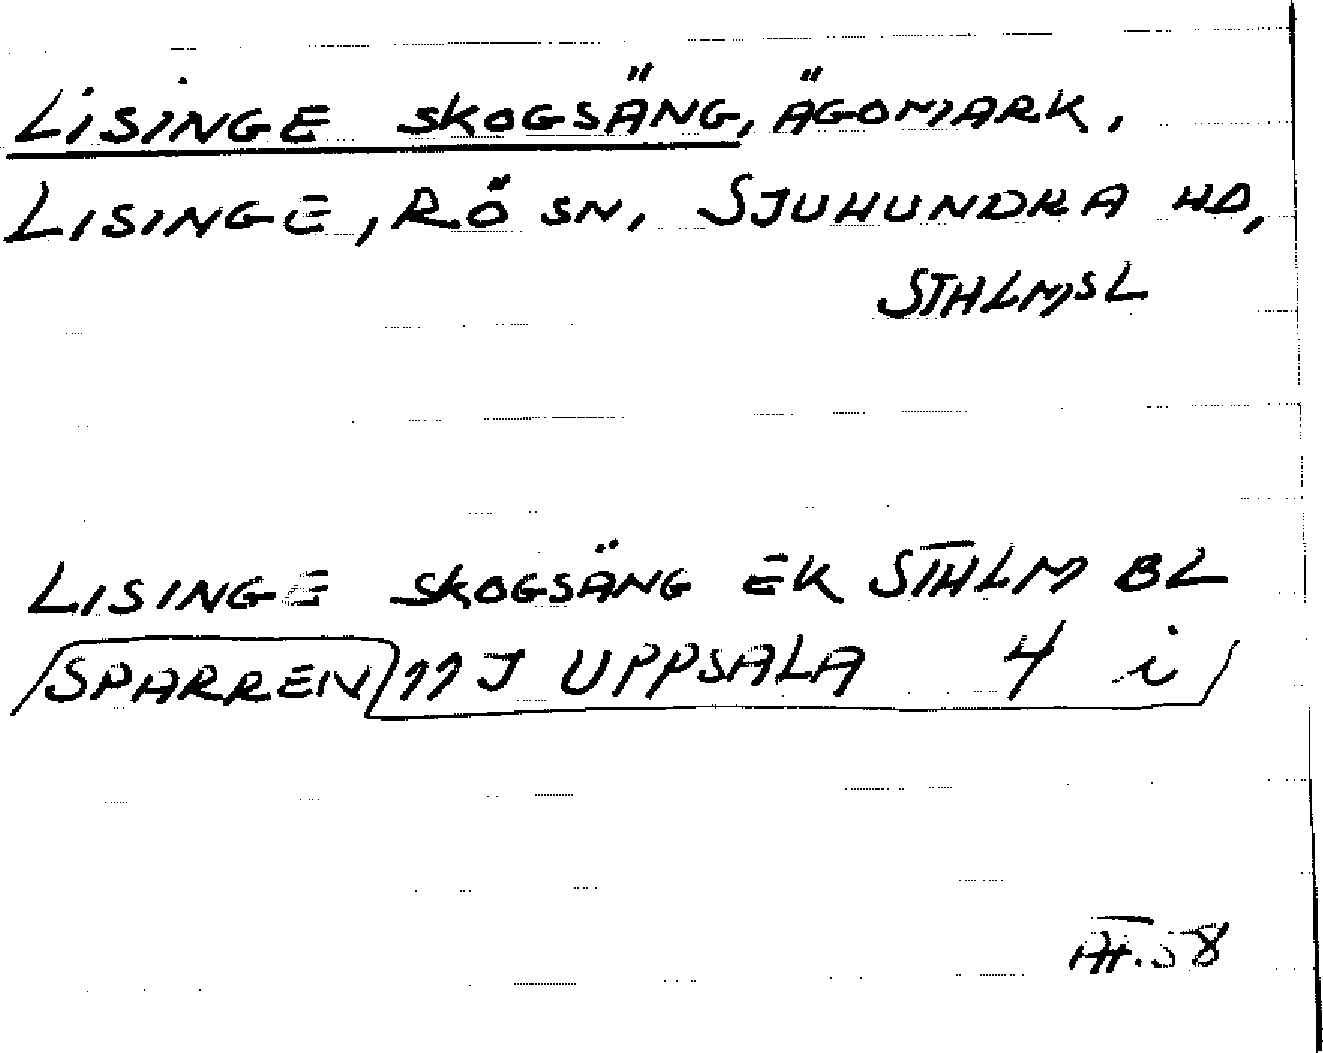 LISINGE SKOGSÄNG, ÄGOMARK,
LISINGE, RÖ SN, SJUHUNDRA HD,
STHLMSL
LISINGE SKOGSÄNG EK STHLM BL
SPARREN 11 J UPPSALA 4 i